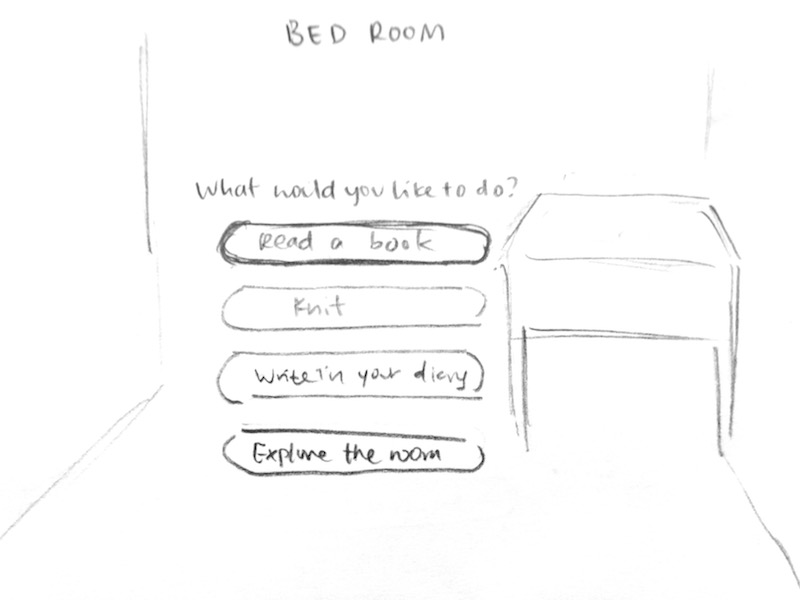 BED ROOM
What would you like to do?
Read a book
Knit
Write in your diary
Explore the room